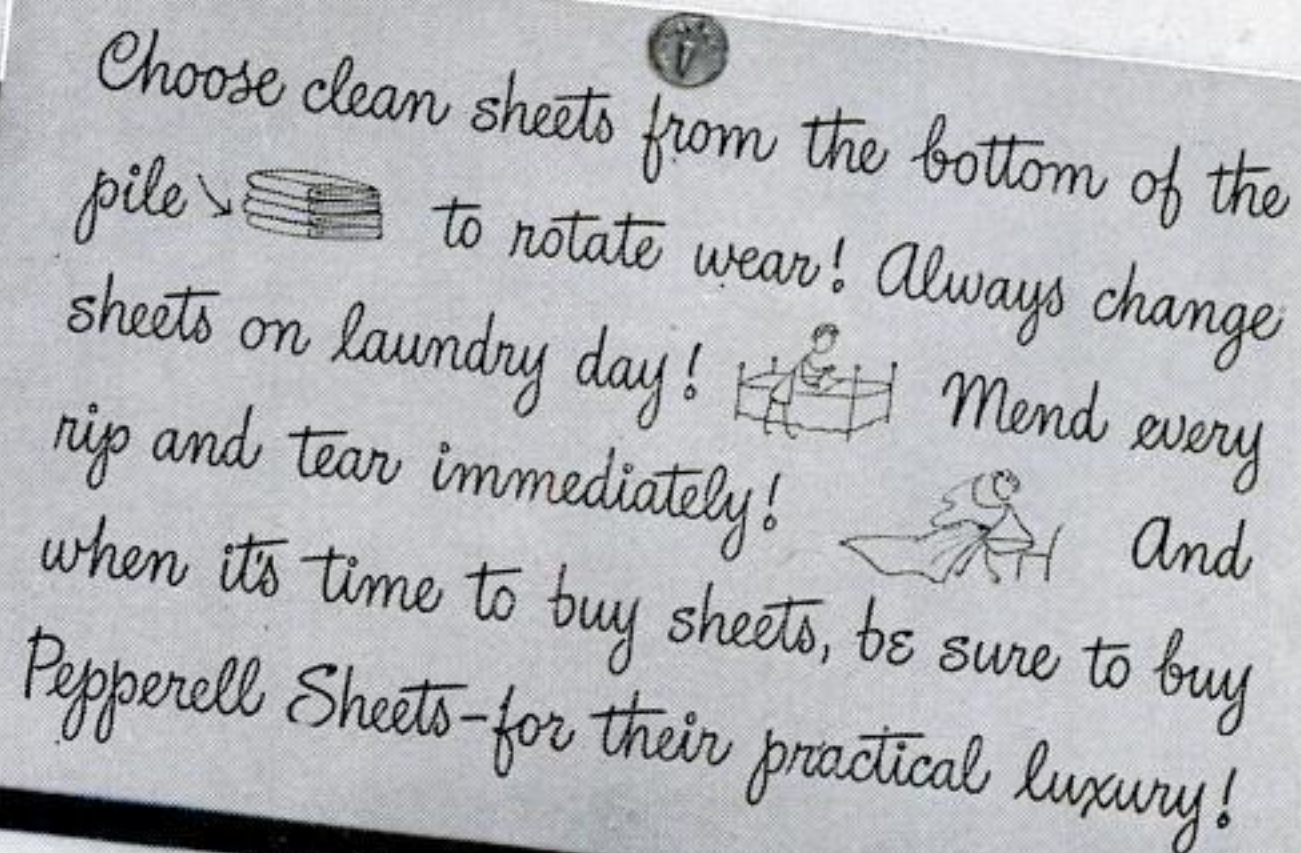 Choose clean sheets from the bottom of the
pile to rotate wear! Always change
sheets on laundry day! Mend every
rip and tear immediately! And
when it's time to buy sheets, be sure to buy
Pepperell Sheets-for their practical luxury!